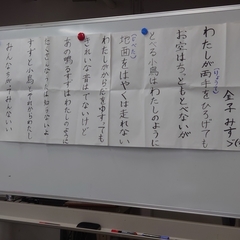 金子 みすゞ
わたしが両手をひろげても
お空はちっともとべないが
とべる小鳥はわたしのように
地面をはやくは走れない
わたしがからだをゆすっても
きれいな音はでないけど
あの鳴るすずはわたしのように
知らないよ
すずと小鳥とそれからわたし
みんなちがってみんないい